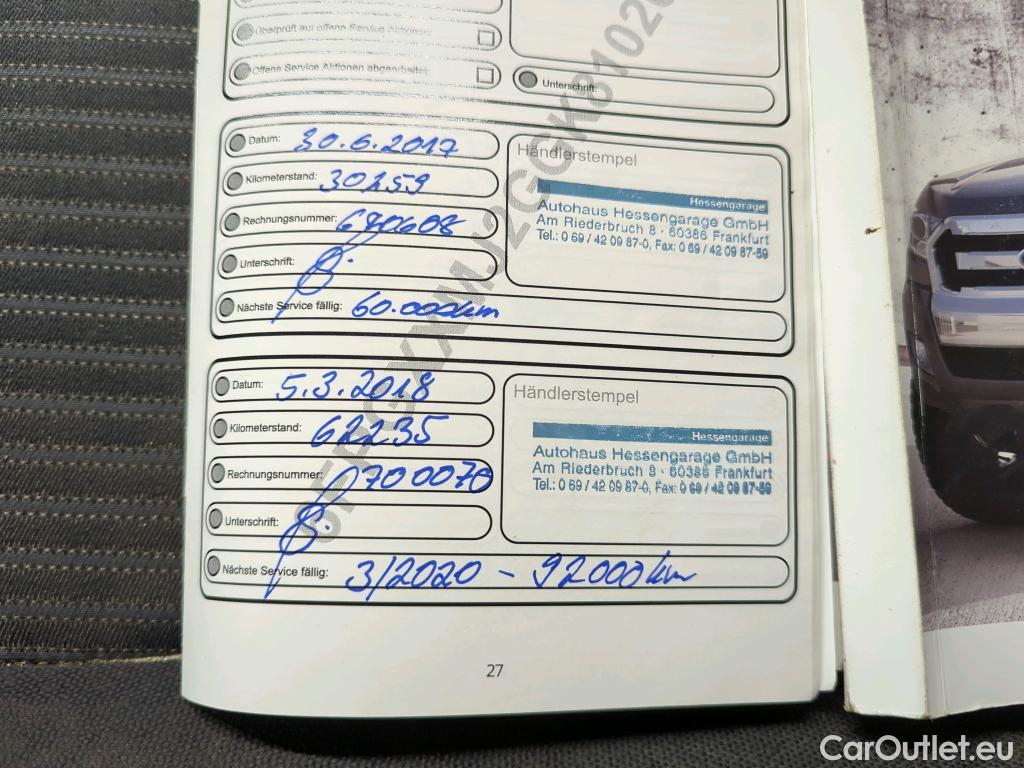 Überprüft auf offene Service Aktionen:
Offene Service Aktionen abgearbeitet:
Unterschrift:
Datum: 30.6.2017
Kilometerstand: 30259
Rechnungsnummer: 670608
Unterschrift:
Nächste Service fällig: 60.000km
Händlerstempel
Hessengarage
Autohaus Hessengarage GmbH
Am Riederbruch 8 · 60386 Frankfurt
Tel.: 0 69 / 42 09 87-0, Fax: 0 69 / 42 09 87-59
Datum: 5.3.2018
Kilometerstand: 62235
Rechnungsnummer: 0700070
Unterschrift:
Nächste Service fällig: 3/2020 - 92000km
Händlerstempel
Hessengarage
Autohaus Hessengarage GmbH
Am Riederbruch 8 · 60386 Frankfurt
Tel.: 0 69 / 42 09 87-0, Fax: 0 69 / 42 09 87-59
27
CarOutlet.eu